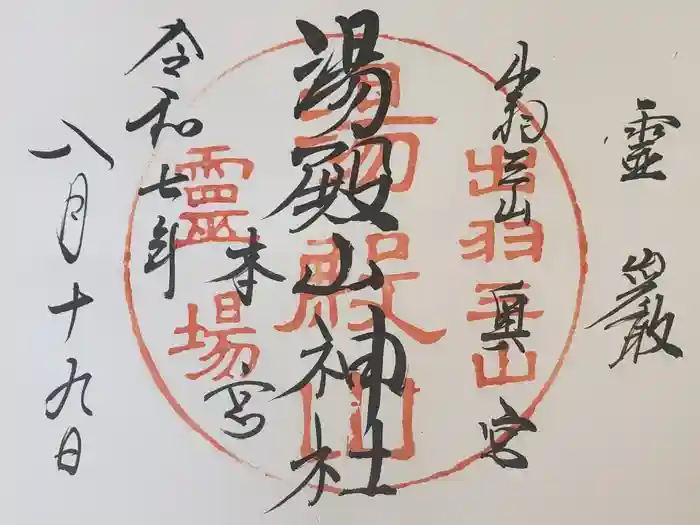 靈巖
出羽三山奥宮
湯殿山神社
本宮
令和七年
八月十九日
出羽三山
湯殿山
靈場